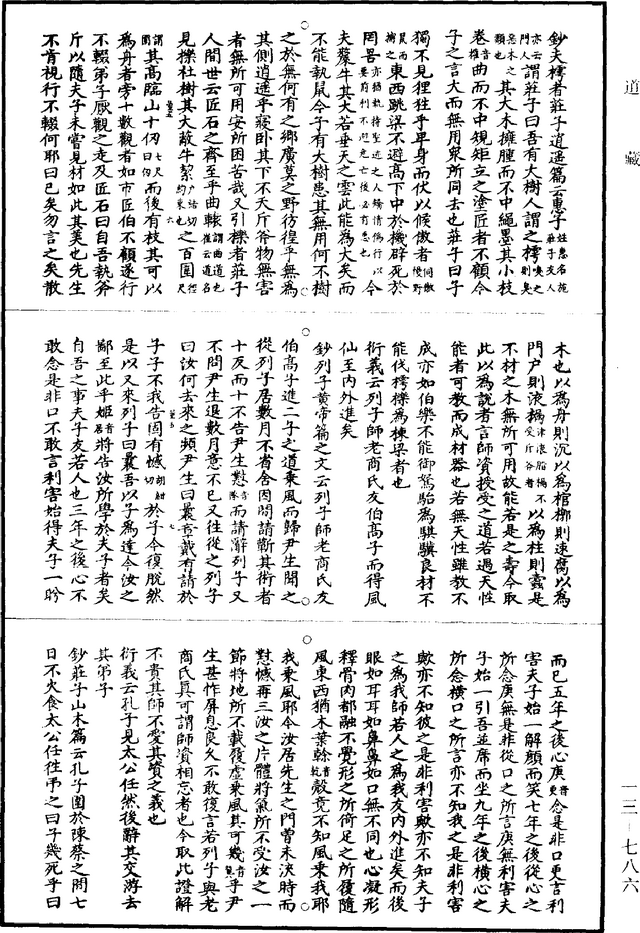 道藏
鈔夫樗者莊子逍遙篇云惠子姓惠名施莊子友人
亦云門人謂莊子曰吾有大樹人謂之樗嗅之則臭
惡木之類也其大本擁腫而不中繩墨其小枝
卷音拳曲而不中規矩立之塗匠者不顧今
子之言大而無用衆所同去也莊子曰子
獨不見狸狌乎卑身而伏以候敖者伺遨後野
鼠而捕之東西跳梁不避高下中於機辟死於
罔罟亦猶執持聖迹之人矯情偽行以要前利不避死亡後必有患也今
夫斄牛其大若垂天之雲此能為大矣而
不能執鼠今子有大樹患其無用何不樹
之於無何有之鄉廣莫之野彷徨乎無為
其側逍遙乎寢卧其下不夭斤斧物無害
者無所可用安所困苦哉又引櫟者莊子
人間世云匠石之齊至乎曲轅謂曲道也崔云道名
見櫟社樹其大蔽牛絜户結切約束也之百圍徑尺
謂圍其高臨山十仞七尺曰仞而後有枝其可以
為舟者旁十數觀者如市匠伯不顧遂行
不輟弟子厭觀之走及匠石曰自吾執斧
斤以隨夫子未嘗見材如此其美也先生
不肯視行不輟何耶曰已矣勿言之矣散
木也以為舟則沉以為棺槨則速腐以為
門户則液樠津液脂樠不受斤斧者以為柱則蠹是
不材之木無所可用故能若是之壽今取
此以為說者言師資授受之道若遇天性
能者可教而成材器也若無天性雖教不
成亦如伯樂不能御駑駘為騏驥良材不
能伐樗櫟為棟梁者也
衍義云列子師老商氏友伯高子而得風
仙至內外進矣
鈔列子黃帝篇之文云列子師老商氏友
伯高子進二子之道乘風而歸尹生聞之
從列子居數月不省舍因間請蘄其術者
十反而十不告尹生懟音隊而請辭列子又
不問尹生退數月意不已又往從之列子
曰汝何去來之頻尹生曰曩章戴有請於
子子不我告固有憾胡紺切於子今復脫然
是以又來列子曰曩吾以子為達今汝之
鄙至此乎姬音居將告汝所學於夫子者矣
自吾之事夫子友若人也三年之後心不
敢念是非口不敢言利害始得夫子一眄
而已五年之後心庚音更念是非口更言利
害夫子始一解顏而笑七年之後從心之
所念庚無是非從口之所言庚無利害夫
子始一引吾並席而坐九年之後橫心之
所念橫口之所言亦不知我之是非利害
歟亦不知彼之是非利害歟亦不知夫子
之為我師若人之為我友內外進矣而後
眼如耳耳如鼻鼻如口無不同也心凝形
釋骨肉都融不覺形之所倚足之所履隨
風東西猶木葉幹音乾殼竟不知風乘我耶
我乘風耶今汝居先生之門曾未浹時而
懟憾再三汝之片體將氣所不受汝之一
節將地所不載履虛乘風其可幾音冀乎尹
生甚怍屏息良久不敢復言若列子與老
商氏真可謂師資相忘者也今取此證解
不貴其師不愛其資之義也
衍義云孔子見太公任然後辭其交游去
其弟子
鈔莊子山木篇云孔子圍於陳蔡之間七
日不火食太公任往弔之曰子幾死乎曰
一三—七八六